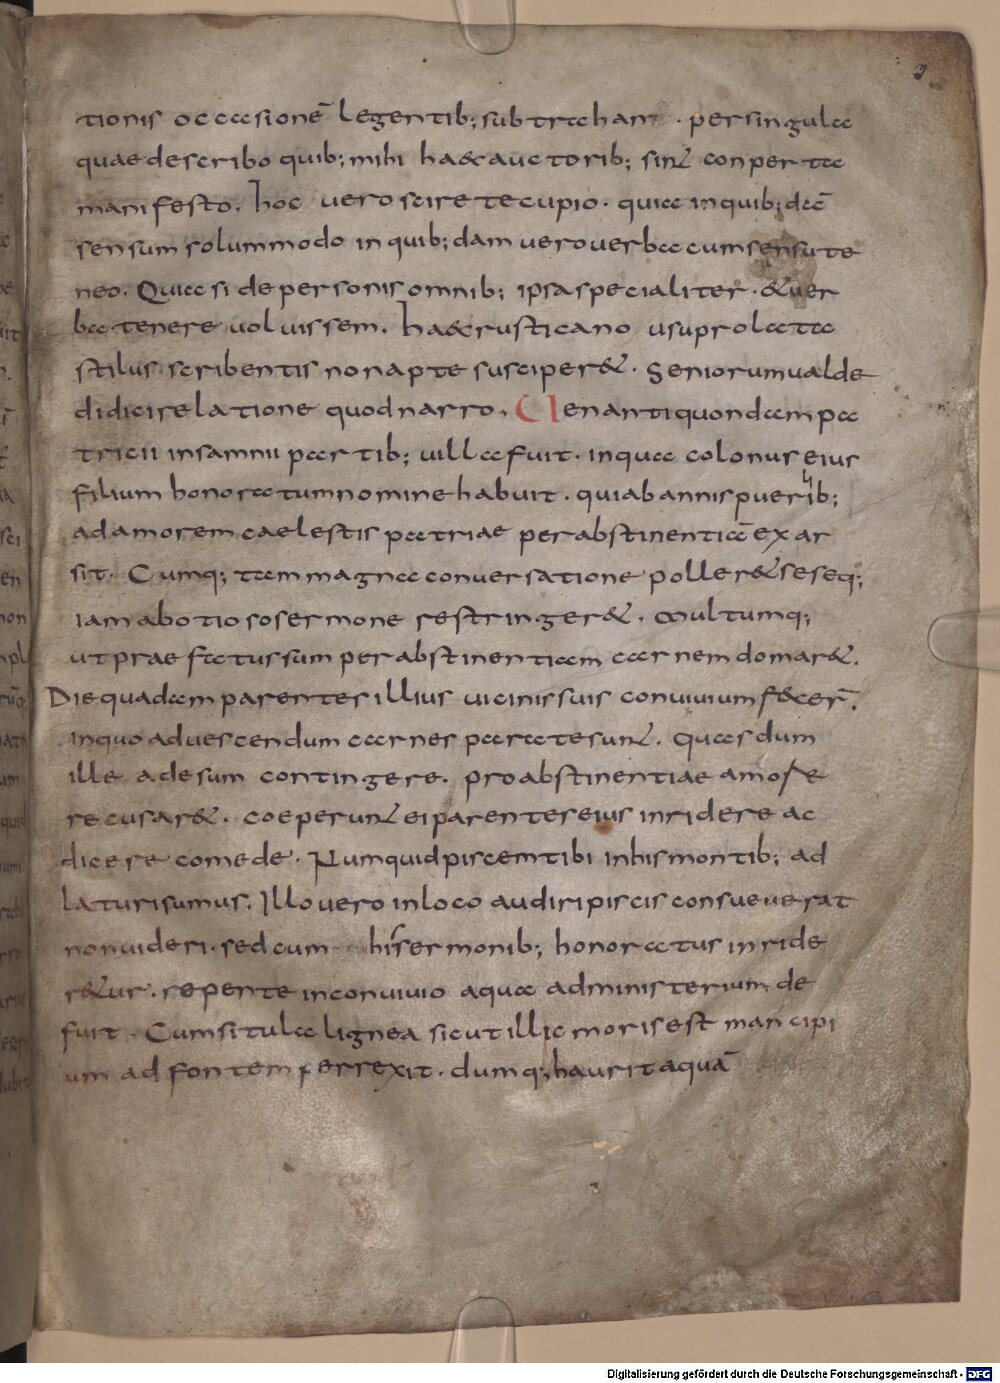 3
tionis occasionē legentib; subtraham · per singula
quae describo quib; mihi haec auctorib; sint conperta
manifesto. hoc vero scire te cupio · quia in quib;dā
sensum solummodo in quib;dam vero verba cum sensu te
neo. Quia si de personis omnib; ipsa specialiter · & ver
ba tenere voluissem. haec rusticano usu prolata
stilus scribentis non apte susciper&. Seniorum valde
didici relatione quod narro. Uenanti quondam pa
tricii in samnii partib; villa fuit · in qua colonus eius
filium honoratum nomine habuit · qui ab annis puerilib;
ad amorem caelestis patriae per abstinentiā exar
sit. Cumq; tam magna conversatione poller& seseq;
iam ab otioso sermone restringer&. Multumq;
ut praefatus sum per abstinentiam carnem domar&.
Die quadam parentes illius vicinis suis convivium fecer̄.
in quo ad vescendum carnes paratae sunt. quas dum
ille ad esum contingere. pro abstinentiae amore
recusar&. coeperunt ei parentes eius inridere ac
dicere comede. Numquid piscem tibi in his montib; ad
laturi sumus. Illo vero in loco audiri piscis consueverat
non videri. sed cum his sermonib; honoratus inride
r&ur. repente in convivio aqua administerium de
fuit. Cum situla lignea sicut illic moris est mancipi
um ad fontem perrexit. dumq; haurit aquā
Digitalisierung gefördert durch die Deutsche Forschungsgemeinschaft - DFG